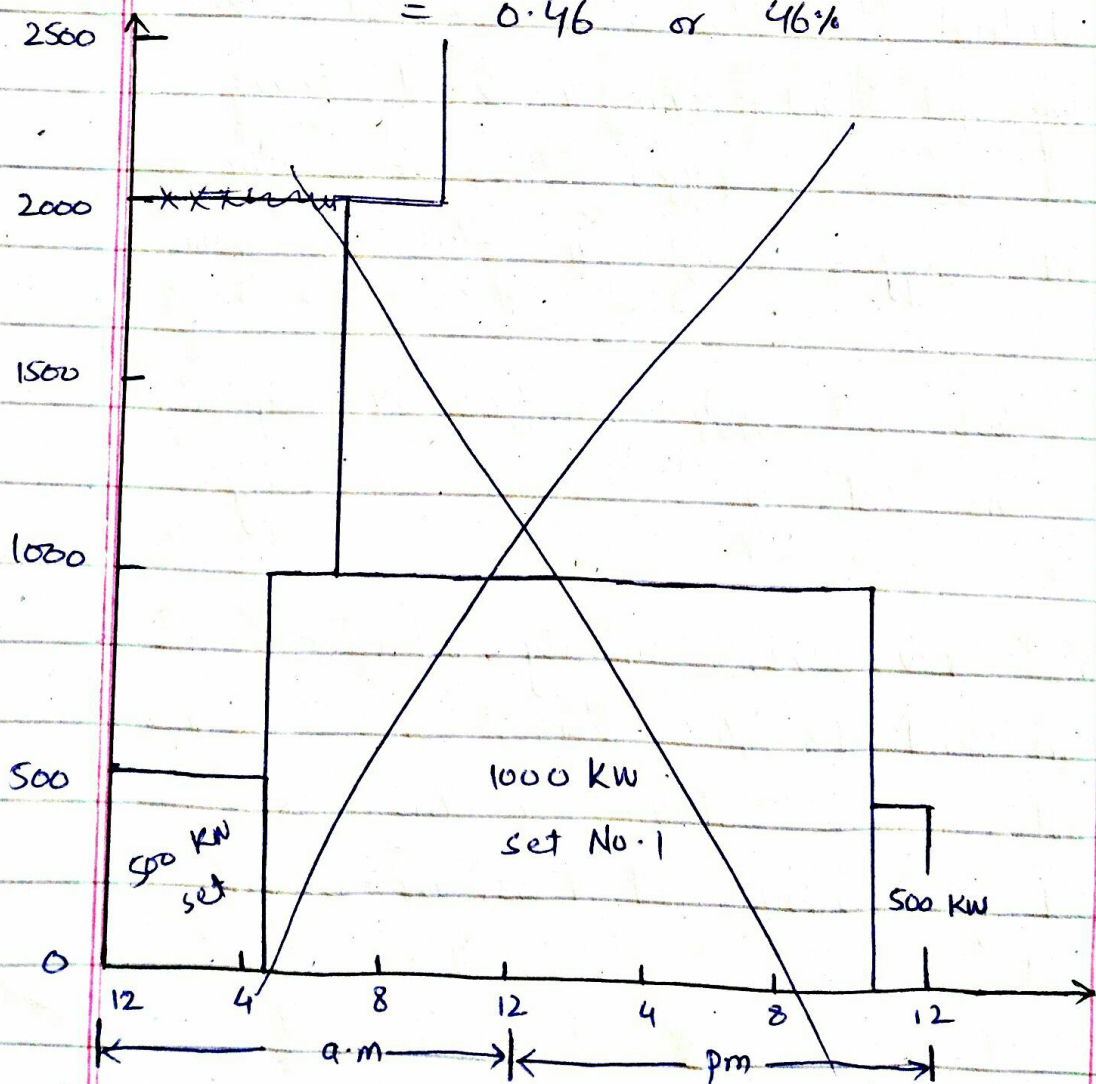 = 0.46 or 46%
2500
2000
1500
1000
500
0
1000 KW
set No.1
500 KW
set
500 KW
12 4 8 12 4 8 12
a.m pm